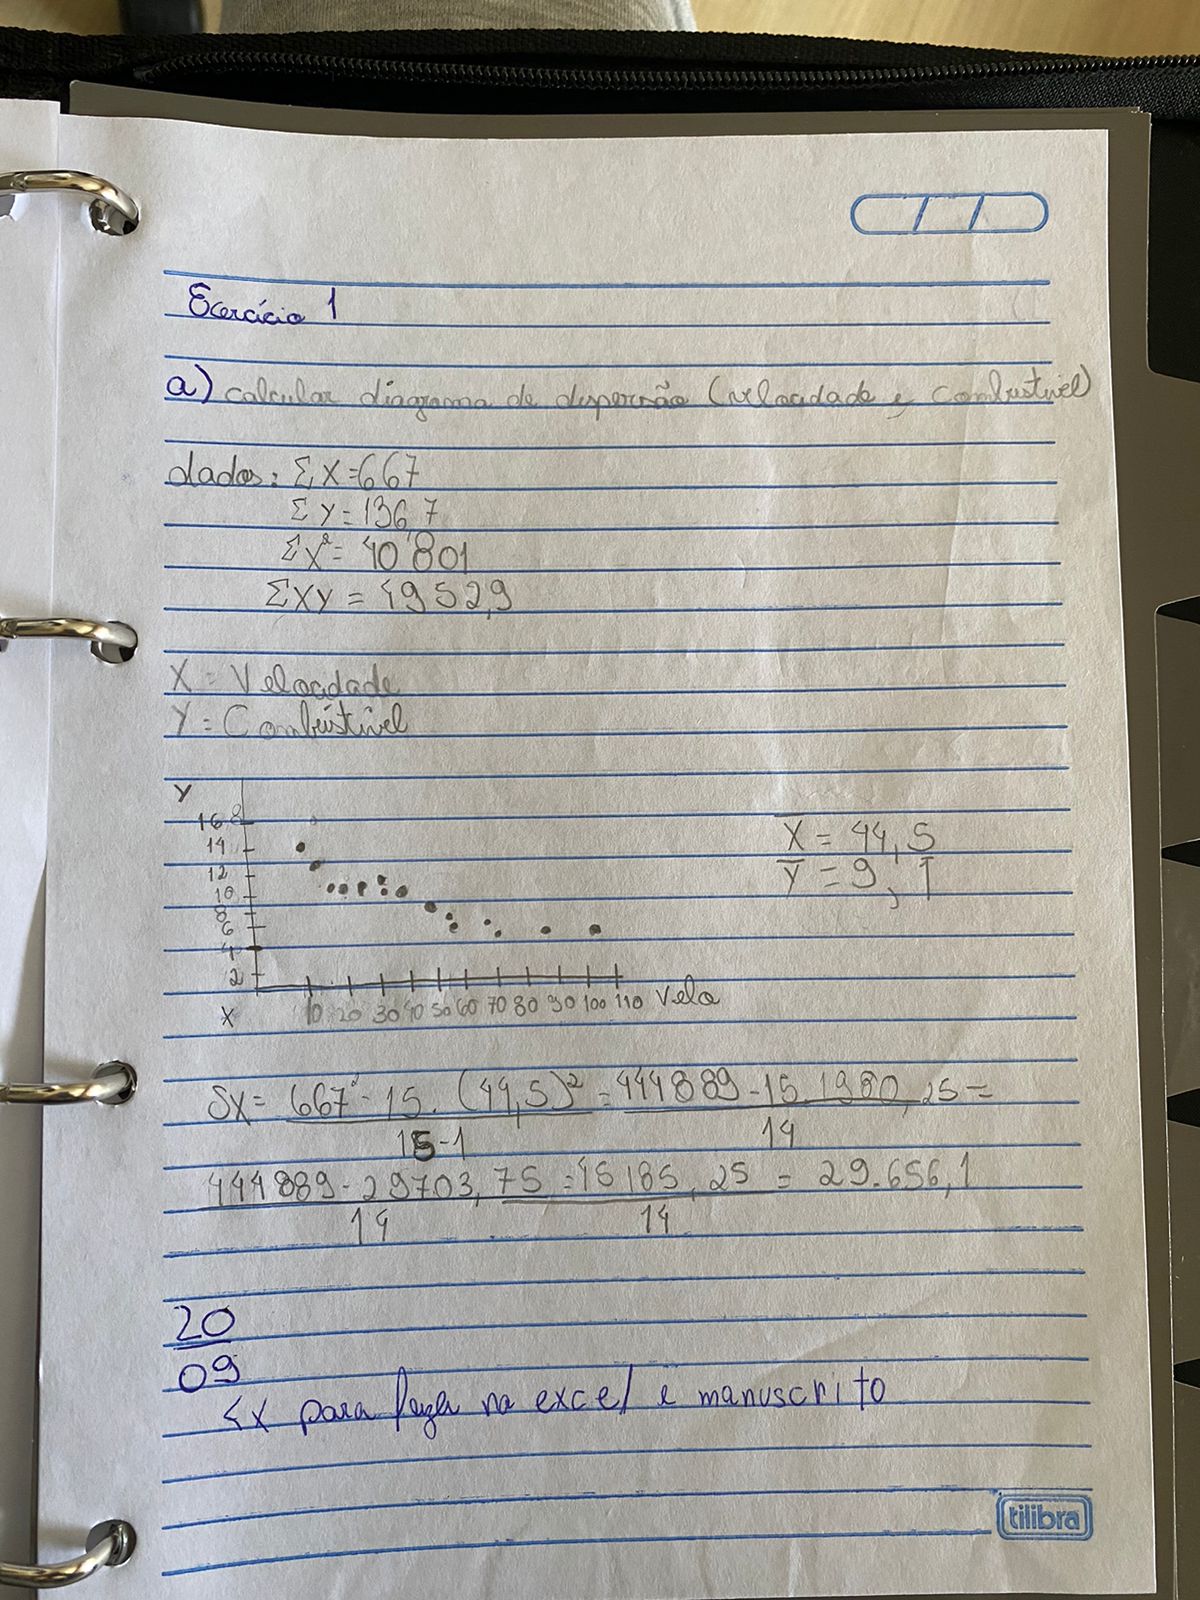 Exercício 1
a) calcular diagrama de dispersão (velocidade e combustível)
dados: Σ X=667
Σ Y= 136,7
Σ X²= 40 801
Σ XY = 4952,9
X = Velocidade
Y = Combústivel
Y
16
14
12
10
8
6
4
2
X 10 20 30 40 50 60 70 80 90 100 110 Velo
X = 44,5
Y = 9,1
SX= 667² - 15. (44,5)² = 444889 - 15. 1980,25 =
15-1 14
444889 - 29703,75 = 415185,25 = 29.656,1
14 14
20
09
para fazer no excel e manuscrito
tilibra